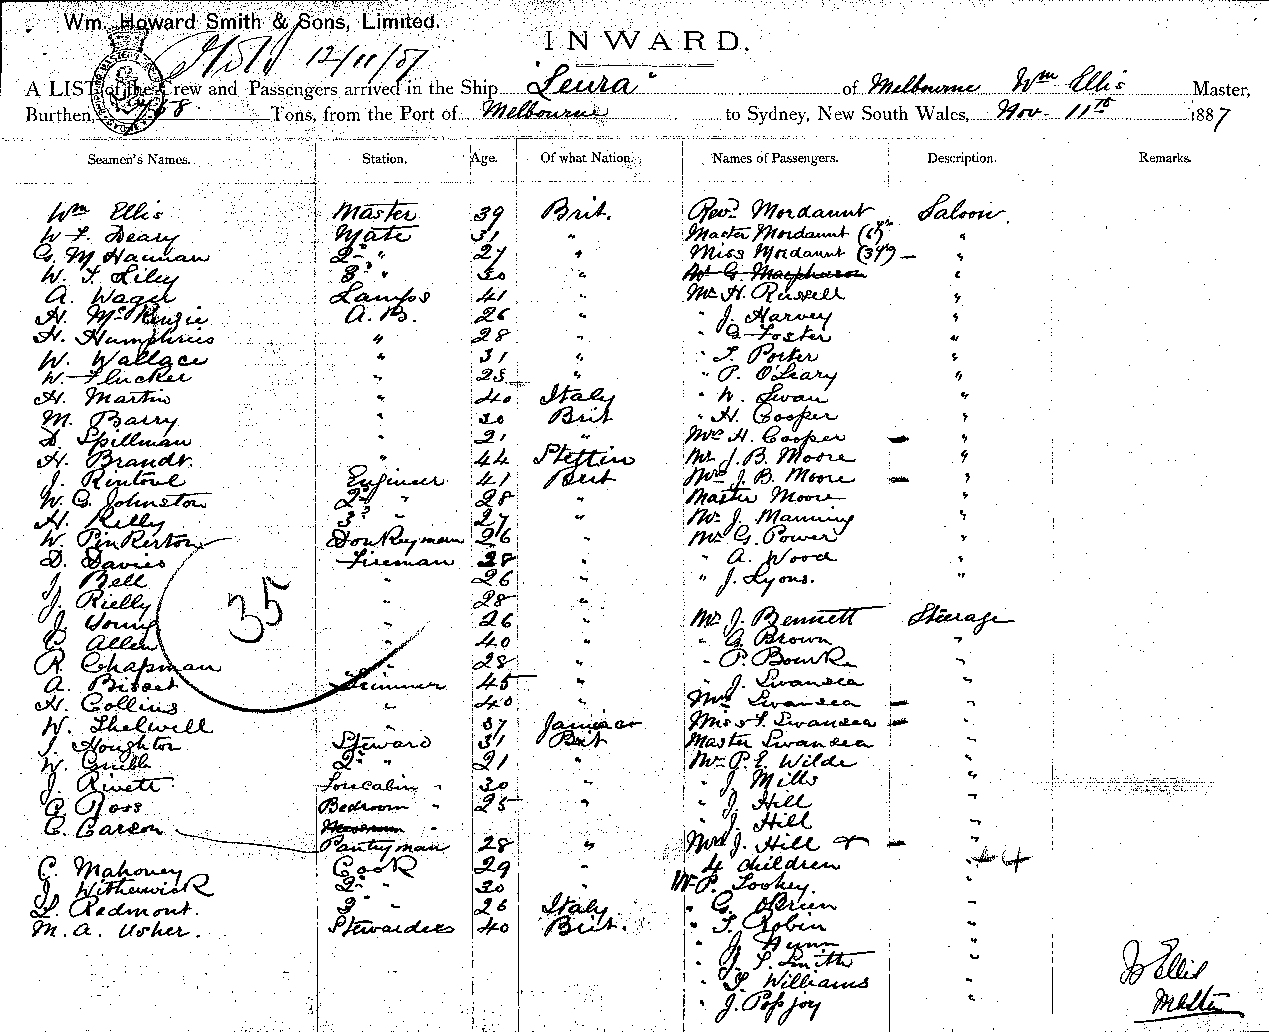 Wm. Howard Smith & Sons, Limited.
INWARD.
12/11/87
A LIST of the Crew and Passengers arrived in the Ship "Leura" of Melbourne Wm Ellis Master,
Burthen, Tons, from the Port of Melbourne to Sydney, New South Wales, Nov. 11th 1887
Seamen's Names. Station. Age. Of what Nation. Names of Passengers. Description. Remarks.
Wm Ellis Master 39 Brit. Revd Mordaunt Saloon.
W F Deary Mate 31 " Master Mordaunt (6yrs) "
G. M Hannan 2nd " 27 " Miss Mordaunt (3yrs) — "
W. T. Liley 3rd " 30 " Mr G Macpherson "
A. Wager Lamps 41 " Mr H. Russell "
H. McKenzie A.B. 26 " " J. Harvey "
H. Humphries " 28 " " G Foster "
W. Wallace " 31 " " T. Porter "
W. Flucker " 25 " " P. O'Leary "
H. Martin " 40 Italy " W. Swan "
M. Barry " 30 Brit " H. Cooper "
D. Spillman " 21 " Mrs H. Cooper — "
H. Brandt. " 44 Stettin Mr J. B. Moore "
J. Rintoul Engineer 41 Brit Mrs J. B. Moore — "
W. G. Johnston 2nd " 28 " Master Moore "
H. Kelly 3rd " 27 " Mr J. Manning "
W. Pinkerton Donkeyman 26 " Mr G. Power "
D. Davies Fireman 28 " " A. Wood "
J. Bell " 26 " " J. Lyons. "
J. Rielly " 28 "
35
J. Young " 26 " Mr J. Bennett Steerage
C. Allen " 40 " " G Brown "
R. Chapman " 28 " " P. Bourke "
A. Bisset Trimmer 45 " " J. Swansea "
H. Collins " 40 " Mrs Swansea — "
W. Thelwell " 37 Jamaica Miss F. Swansea — "
J. Houghton Steward 31 Brit Master Swansea "
W. 2nd " 21 " Mr P. E. Wilde "
J. Rivett Forecabin " 30 " " J. Mills "
C. Ross Bedroom " 25 " " J. Hill "
C. Carson " " J. Hill "
Pantryman 28 " Mrs J. Hill & — "
C. Mahoney Cook 29 " 4 children " +4
J. Witherwick 2nd " 30 " Mr P. Lookey. "
L. Redmont. 3rd " 26 Italy " G. O'Brien "
M. A. Usher. Stewardess 40 Brit. " T. Robin "
" J. Nunn "
" J. S. Smith "
" T. Williams "
" J. Popjoy "
W Ellis
Master